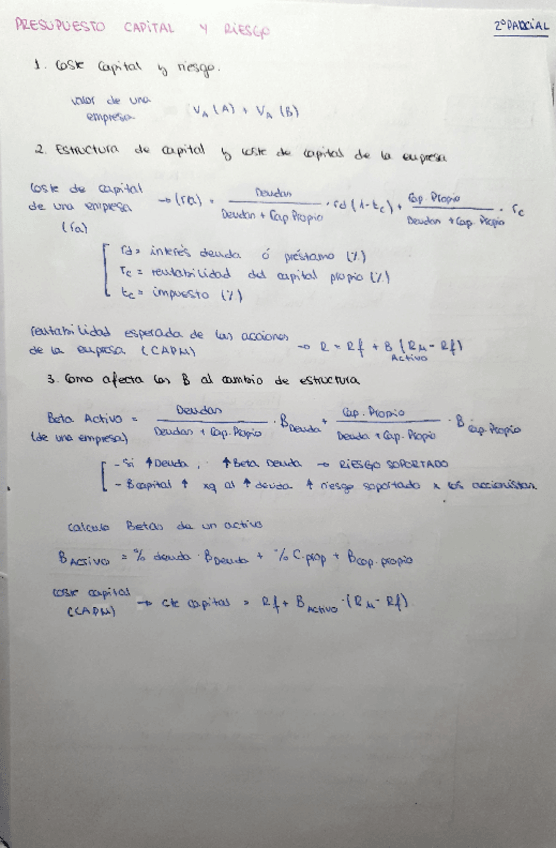 PRESUPUESTO CAPITAL Y RIESGO
2º PARCIAL
1. Coste Capital y riesgo.
valor de una empresa VA (A) + VA (B)
2. Estructura de capital y coste de capital de la empresa
Coste de capital de una empresa (ra) → (ra) = Deudas / Deudas + Cap. Propio · rd (1-tc) + Cap. Propio / Deudas + Cap. Propio · rc
rd = interés deuda ó préstamo (%)
rc = rentabilidad del capital propio (%)
tc = impuesto (%)
rentabilidad esperada de las acciones de la empresa (CAPM) → R = Rf + B Activo (RM - Rf)
3. Como afecta los B al cambio de estructura
Beta Activo (de una empresa) = Deudas / Deudas + Cap. Propio · B Deuda + Cap. Propio / Deuda + Cap. Propio · B Cap. Propio
- Si ↑ Deuda, ↑ Beta Deuda → RIESGO SOPORTADO
- B capital ↑ xq al ↑ deuda ↑ riesgo soportado x los accionistas.
Calculo Betas de un activo
B ACTIVO = % deuda · B Deuda + % C. prop + B cap. propio
coste capital (CAPM) → cte capital = Rf + B ACTIVO · (RM - Rf).